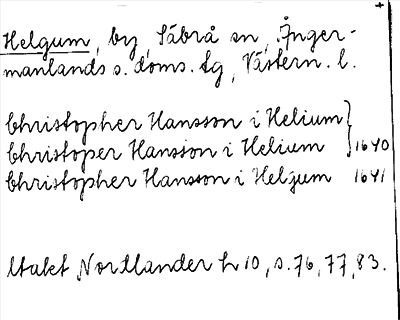 Helgum, by, Säbrå sn, Ånger-
manlands s. doms. tg, Västern. l.
Christopher Hansson i Helium
Christoper Hansson i Helium } 1640
Christopher Hansson i Helgum 1641
Utakt Nortlander h 10, s. 76, 77, 83.